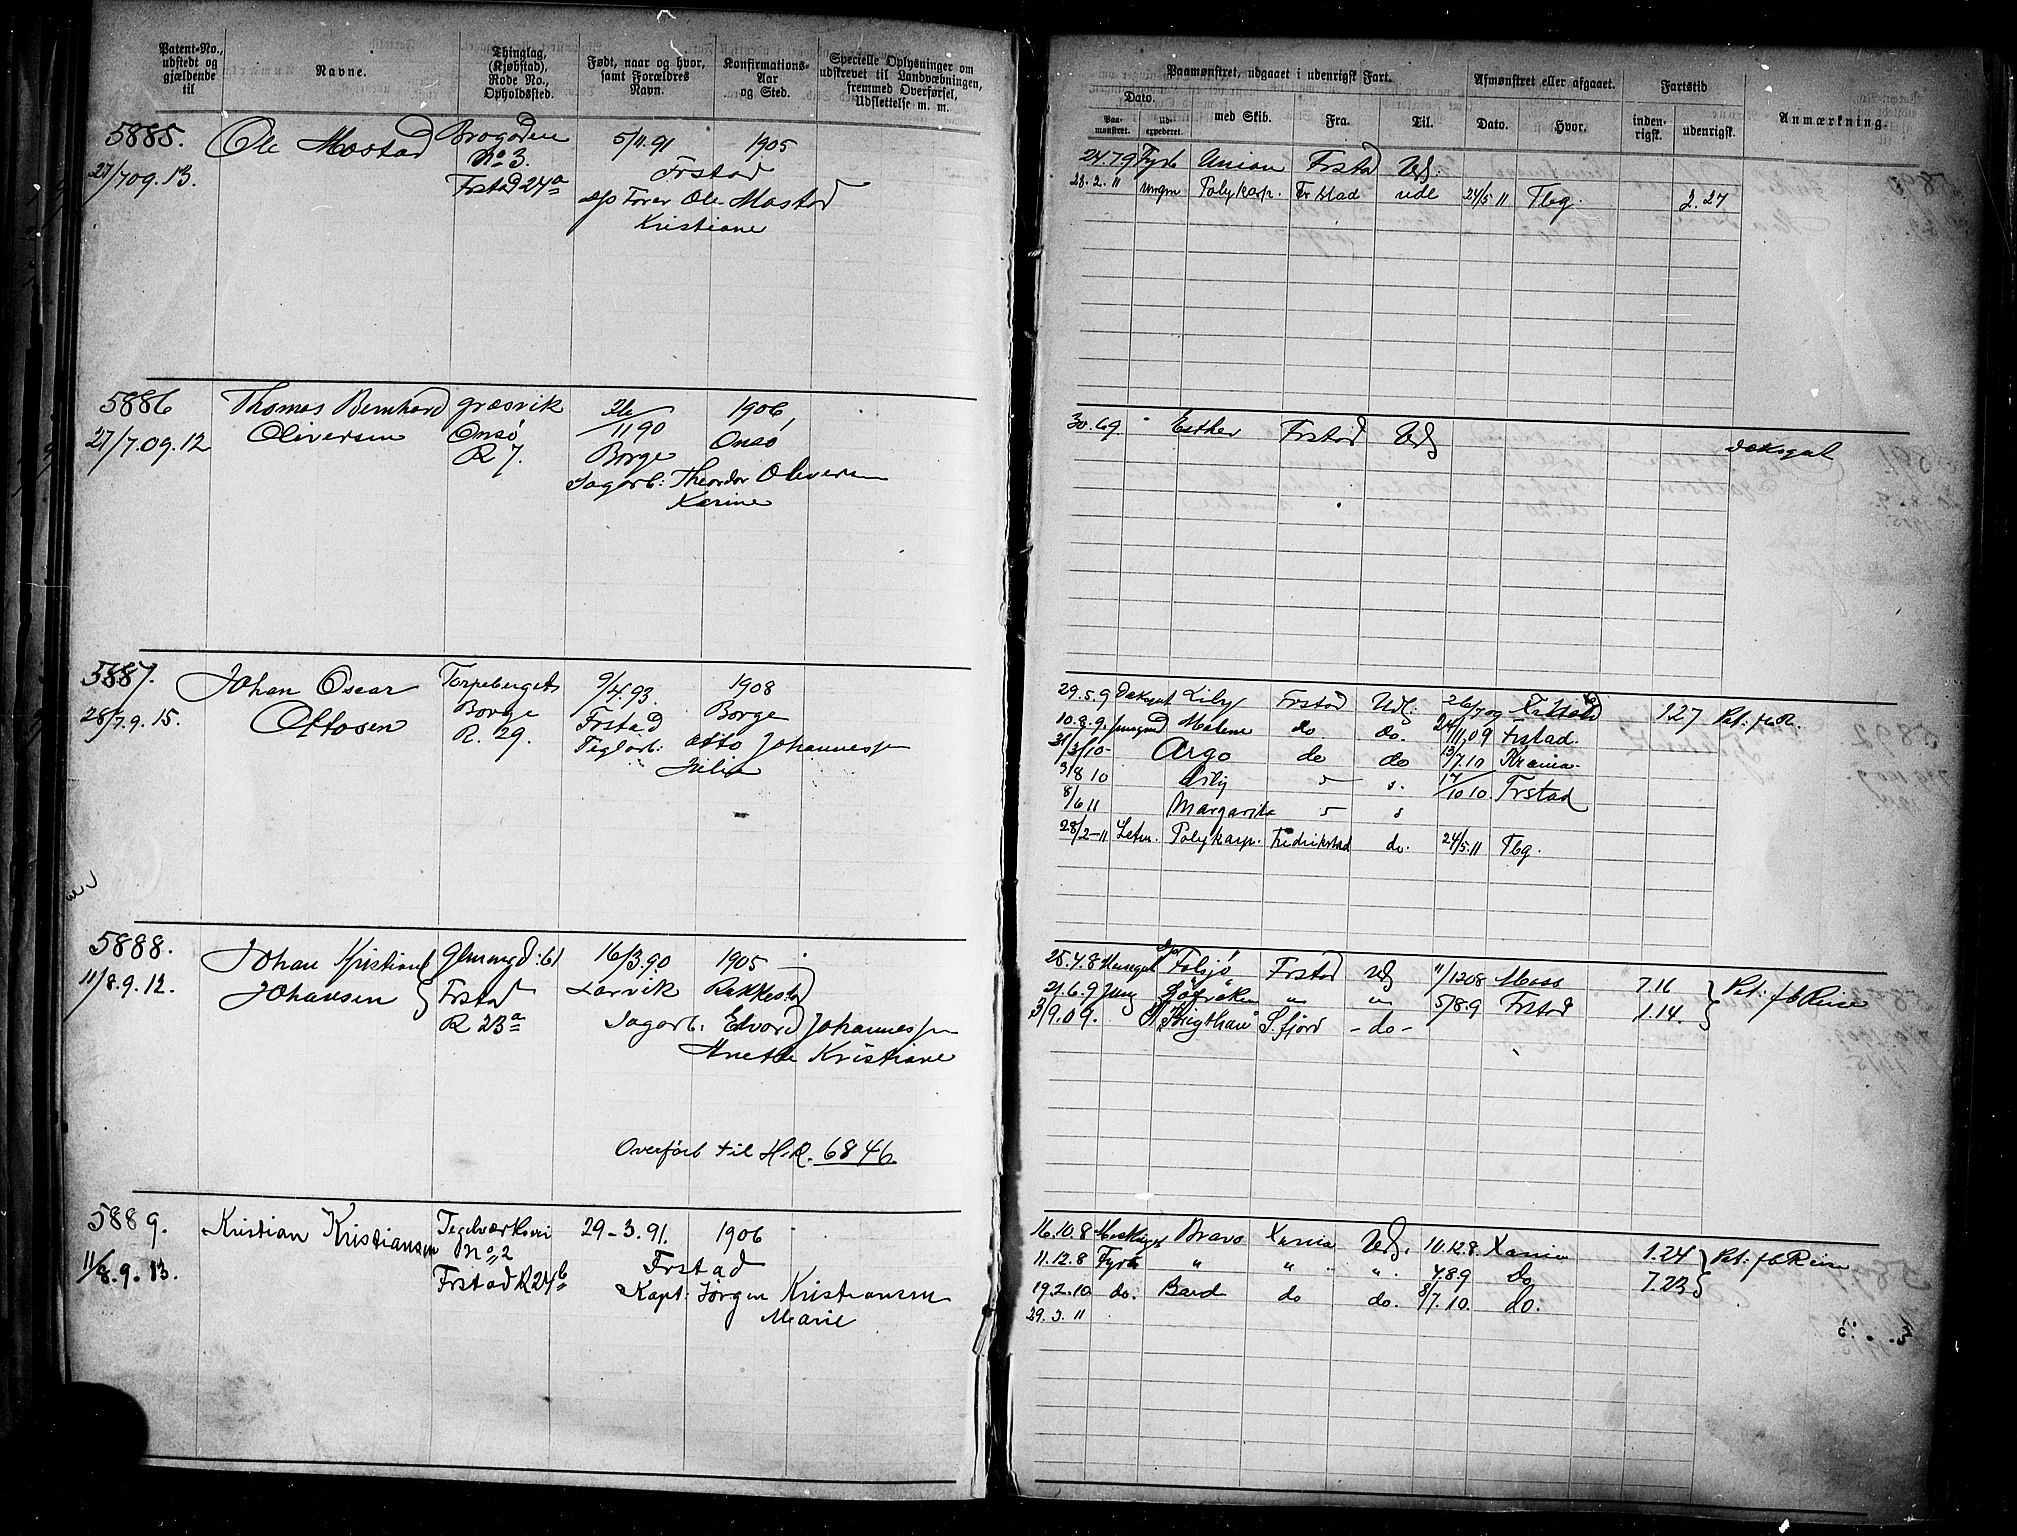 Patent-No., udstedt og gjældende til
Navne.
Thinglag, (Kjøbstad), Rode No., Opholdssted.
Født, naar og hvor, samt Forældres Navn.
Konfirmations-Aar og Sted.
Specielle Oplysninger om udskrevet til Landvæbningen, fremmed Overførsel, Udslettelse m. m.
5885. Ole Mostad Brogaden 5/11.91 1905
No 3. Frstad
27/7 09. 13. Frstad 24a
Fører Ole Mostad
Kristiane
5886 Thomas Bernhard Græsvik 26/11 90 1906,
27/7.09.12 Oliversen Onsø Onsø
R 7. Borge
Dagarb: Theordor Oliversen
Karine
5887. Johan Oscar Torpeberget 9/4.93. 1908
28/7.9.15. Ottosen Borge Frstad Borge
R. 29. Teglarb: Otto Johannessen
Julie
5888. Johan Kristian Glemmegd: 61 16/3.90 1905
11/8.9.12. Johansen Frstad Larvik Rakkestad
R 23a Dagarb. Edvard Johannessen
Anette Kristiane
Overført til H.R. 6846
5889. Kristian Kristiansen Teglværksvei 29-3.91. 1906
No 2 Frstad
11/8.9.13. Frstad R24b Kapt: Jørgen Kristiansen
Marie
Paamønstret, udgaaet i udenrigsk Fart.
Afmønstret eller afgaaet.
Fartstid
Anmærkning.
Dato.
Paa-mønstret.
Ud-expederet.
med Skib.
Fra.
Til.
Dato.
Hvor.
inden-rigsk.
udenrigsk.
24.7.9 Fyrb Union Frstad Udl:
28.2.11 Polykarp. Frstad udl 24/5 11 Tbg. 2.27
30.6.9. Esther Frstad Udl dæksgut
29.5.9 Dæksgut Lily Frstad Udl: 26/7 09 1.27
10.8.9. Malene do do. 24/11.09 Frstad.
31/3/10- Argo do do 13/7.10 Krania.
3/8 10 Lily 17/10 10. Frstad
8/6 11 Margarita
28/2-11 Letm. Polykarp. Fredrikstad do. 24/5.11 Tbg.
28.4.8 Frstad Udl 11/12 08 Moss 7.16
21/6.9 Jung " " 5/8.9 Frstad 1.14.
3/9.09. S.fjord -do-
Pat: f b Reise
16.10.8 Bravo Xania Udl. 10.12.8. Xania 1.24
11.12.8 Fyrb " " " 4.8.9 do 7.23
Pat: f b Reise
19.2.10 do. Bard do do. 8/7.10. do.
29.3.11